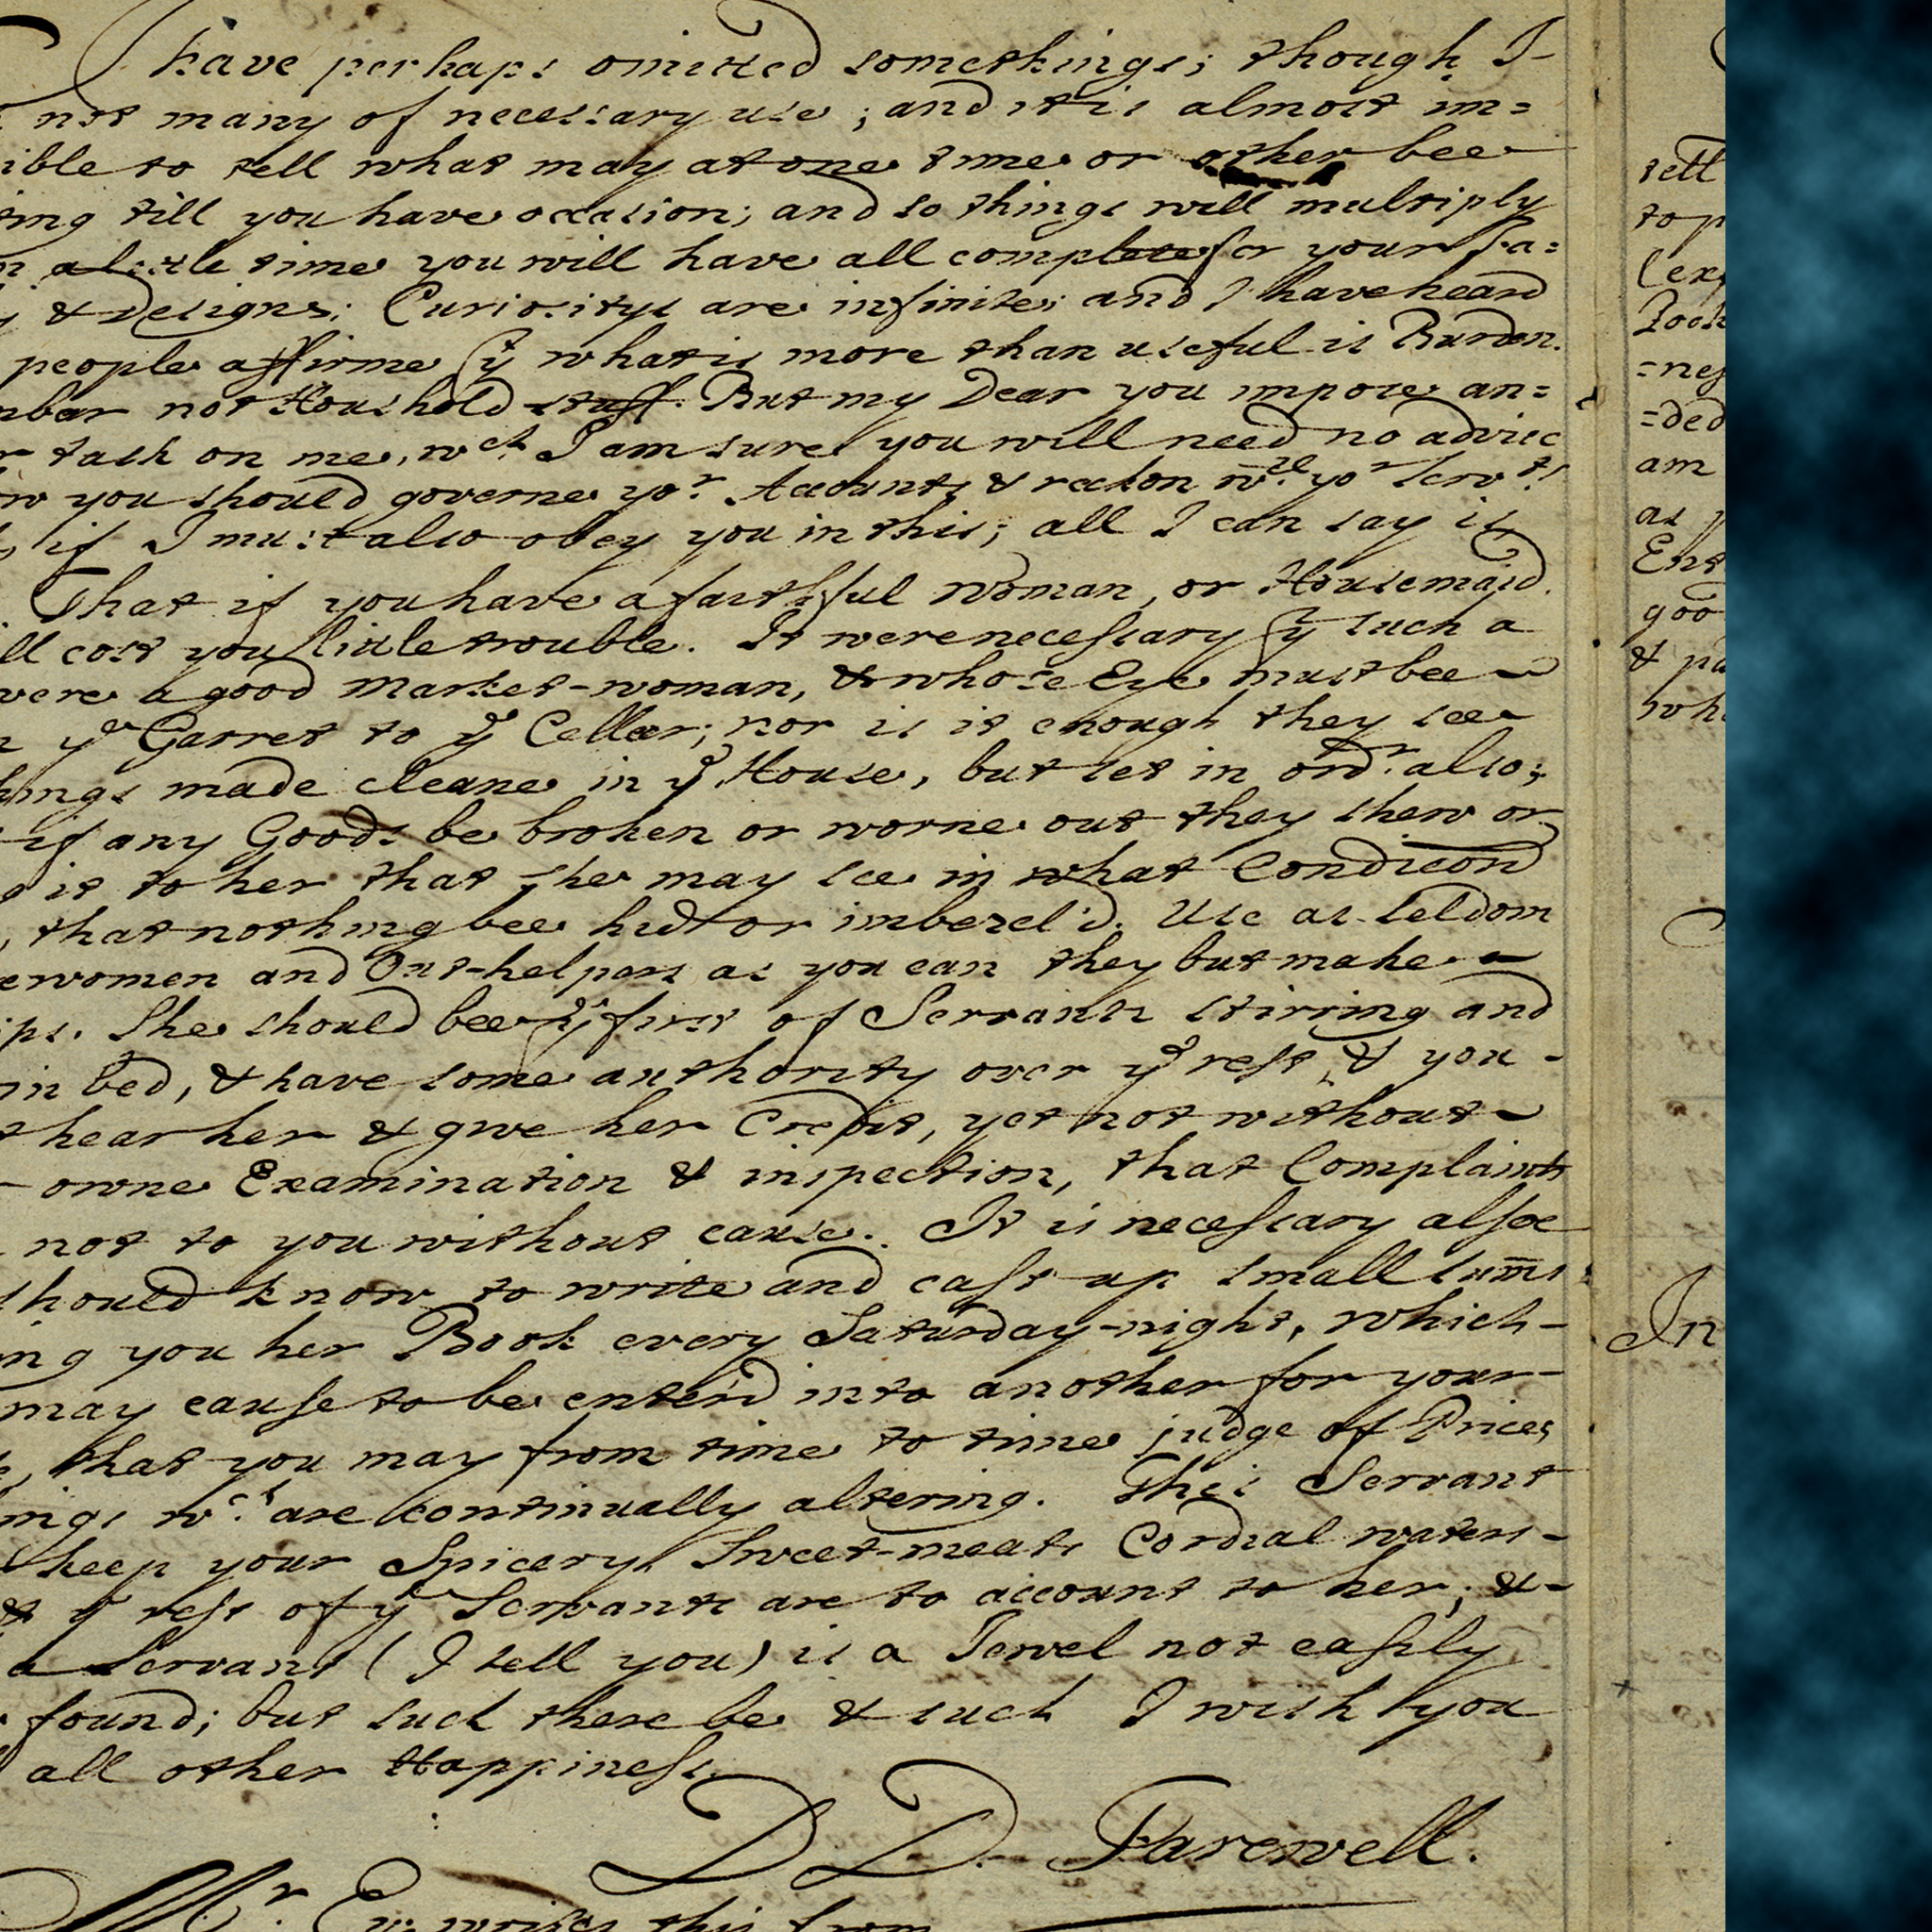 I have perhaps omitted somethings; though I-
not many of necessary use; and it is almost im=
ible to tell what may at one time or other bee
ting till you have occasion; and so things will multiply
a little time you will have all complete for your fa=
& Designs: Curiositys are infinite; and I have heard
people affirme yt what is more than useful is Burden.
mbar not Houshold stuff. But my Dear you impose an=
r task on me, wch I am sure you will need no advice
ow you should governe yor Accounts & reckon wth yor servts!
if I must also obey you in this; all I can say is,
That if you have a faithful woman, or Housemaid.
ill cost you little trouble. It were necessary yt such a
were a good Market-woman, & whose Eye must bee
ye Garret to ye Cellar; nor is it enough they see
hings made cleane in ye House, but set in ordr also;
if any Goods be broken or worne out they shew or
it to her that she may see in what Condicon
, that nothing bee hid or imbezel'd. Use as seldom
ewomen and Out-helpers as you can they but make
ips. She should bee ye first of Servants stirring and
in bed, & have some authority over ye rest, & you -
t hear her & give her Credit, yet not without
owne Examination & inspection, that Complaints
not to you without cause. It is necessary alsoe
should know to write and cast up small sum̄s
ng you her Book every Saturday-night, which-
may cause to be enter'd into another for your-
e, that you may from time to time judge of Prices
ings wch are continually altering. This Servant
keep your Spicery, Sweet-meats Cordial waters-
& ye rest of ye Servants are to account to her; &-
a Servant (I tell you) is a Jewel not easily
found; but such there be & such I wish you
all other Happiness.
D D. Farewell.
Mr. Ev: writes this from
sett
top
(exp
Look
=nes
=ded
am
as
Ent
goo
& pa
wh
In